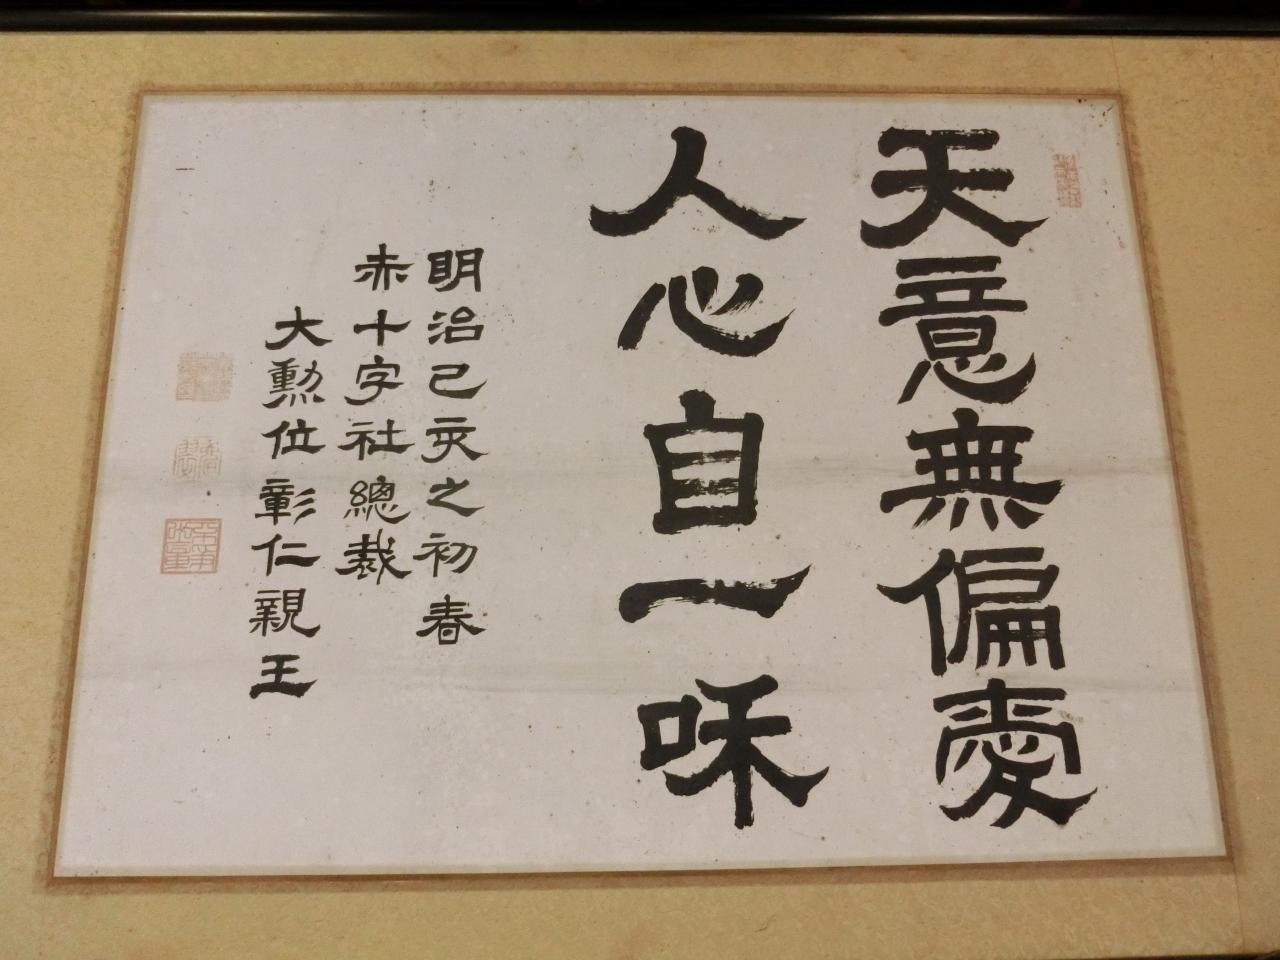 天意無偏愛
人心自一咊
明治己亥之初春
赤十字社總裁
大勲位彰仁親王